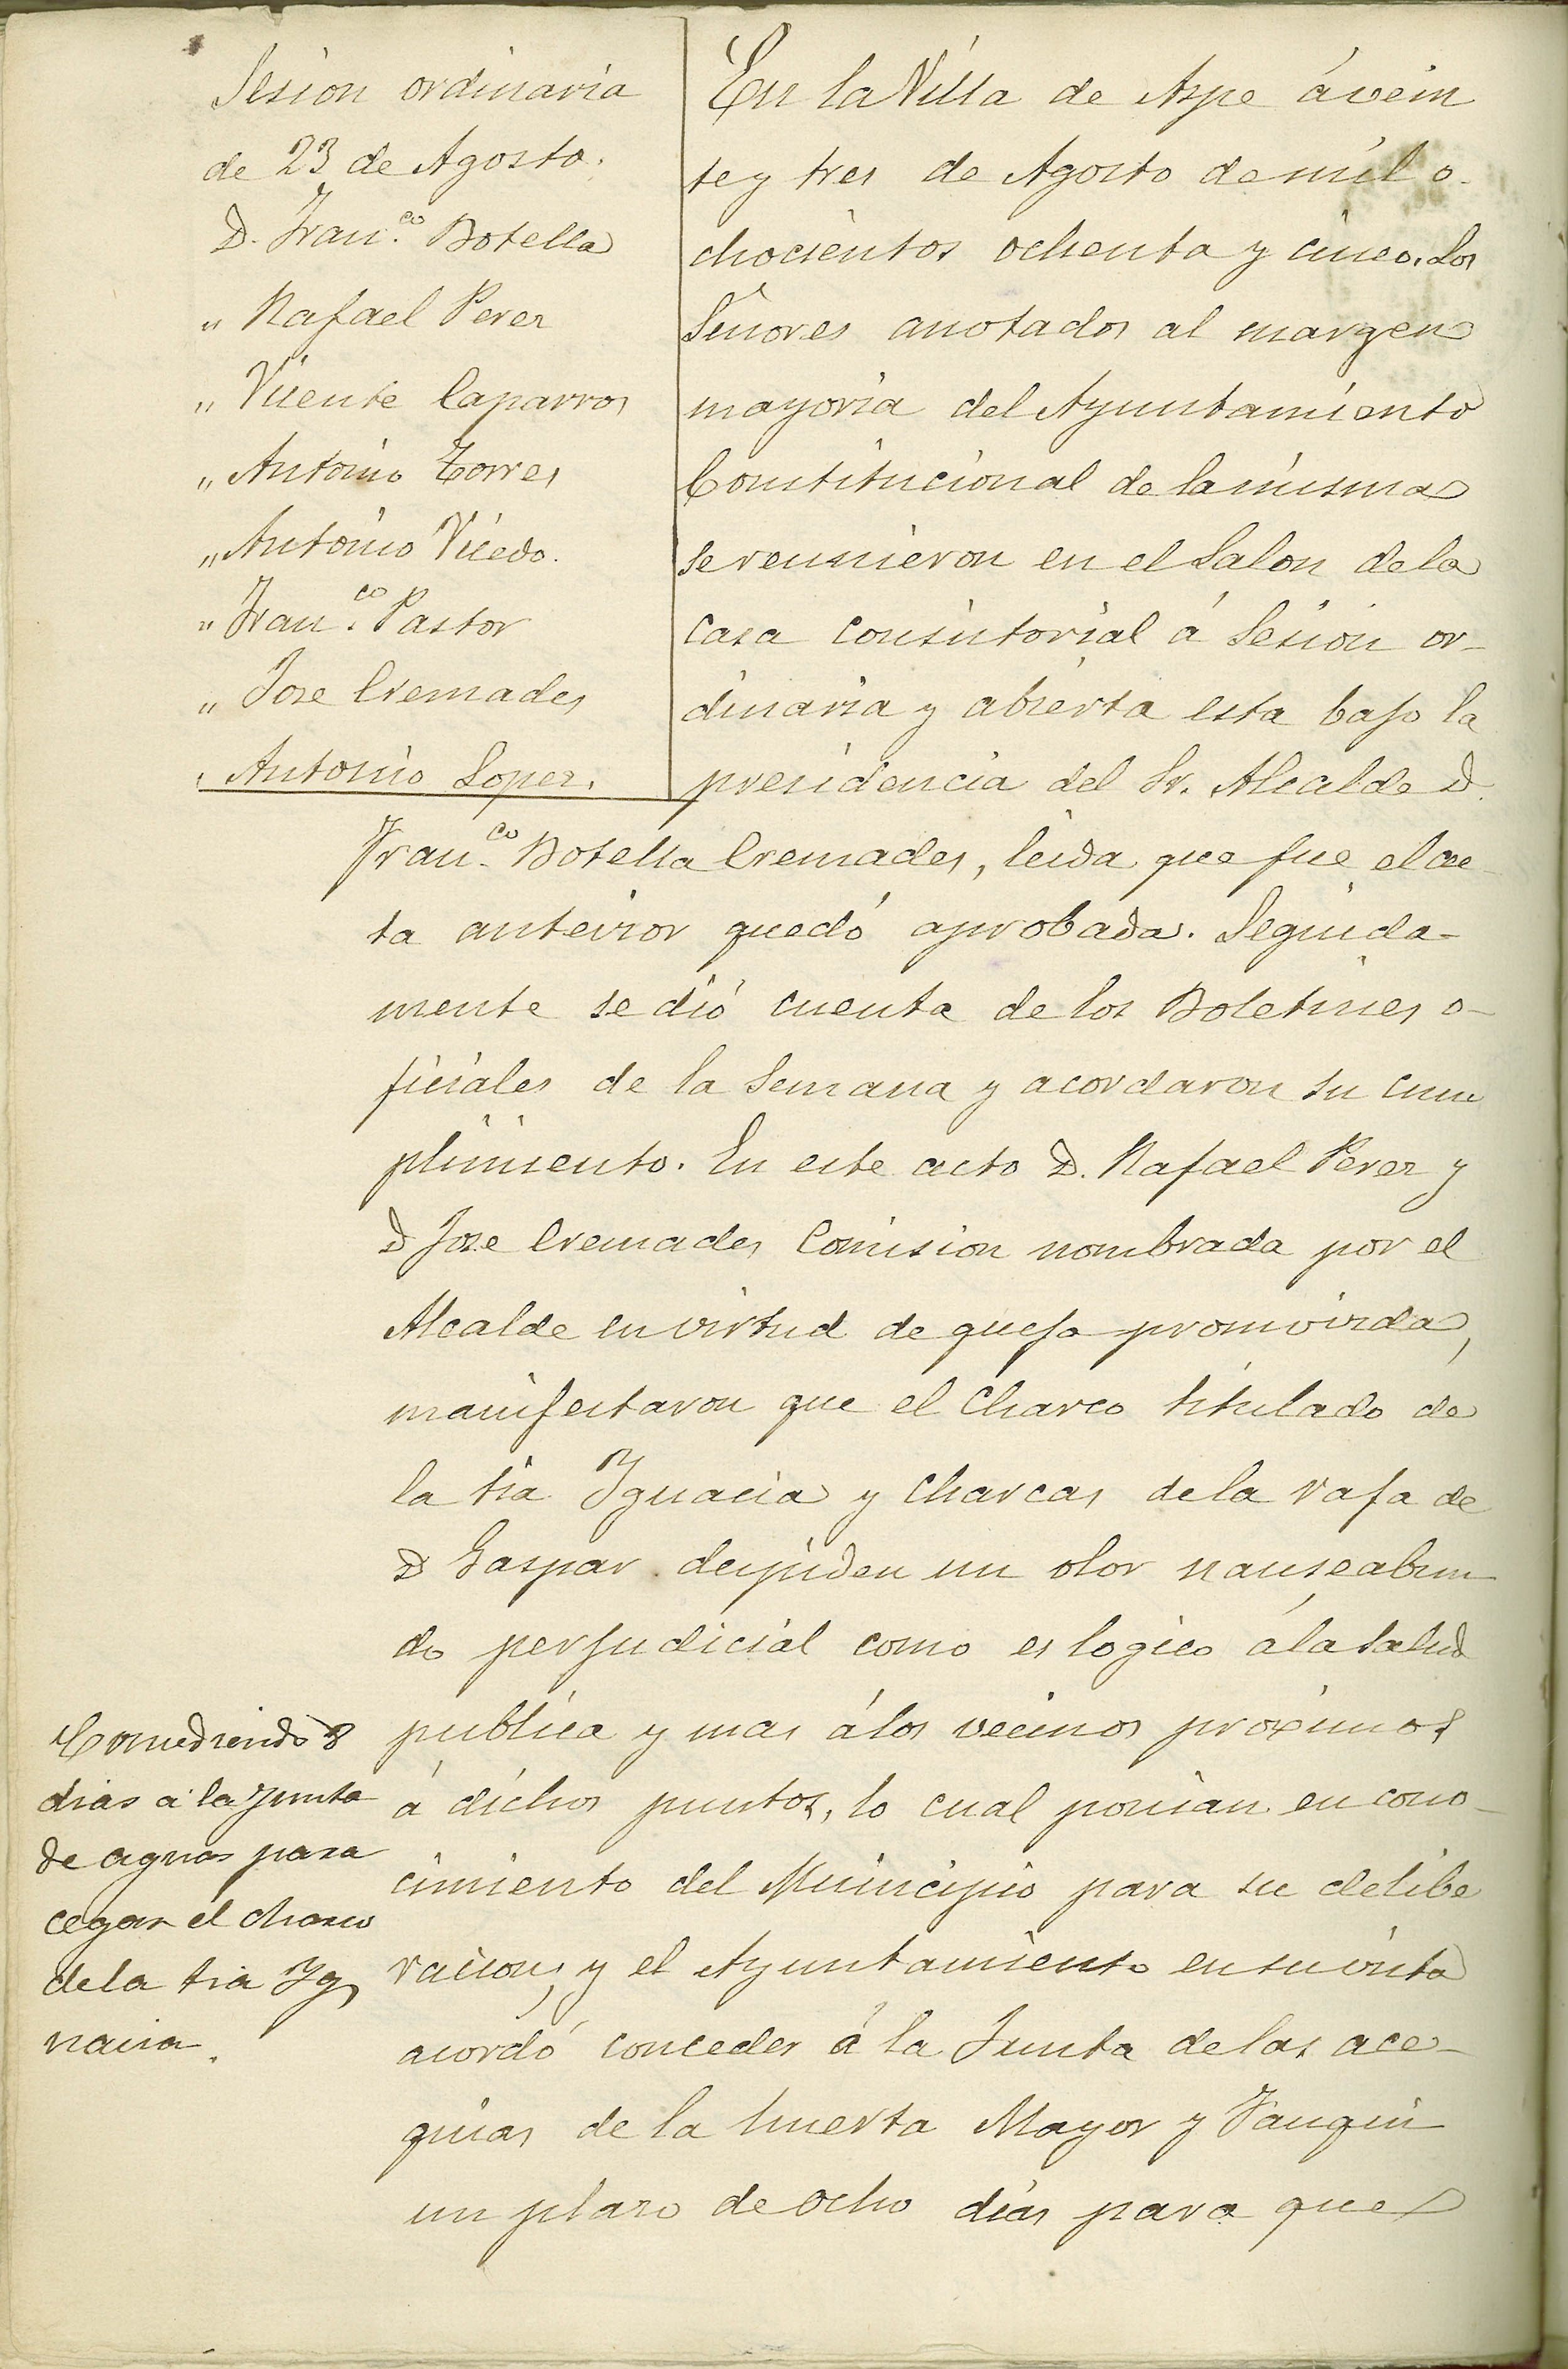 Sesion ordinaria
de 23 de Agosto.
D. Fran.co Botella
" Rafael Perez
" Vicente Caparros
" Antonio Torres
" Antonio Vicedo.
" Fran.co Pastor
" Jose Cremades
" Antonio Lopez.
En la Villa de Aspe á vein
te y tres de Agosto de mil o-
chocientos ochenta y cinco. Los
Señores anotados al margen
mayoria del Ayuntamiento
Constitucional de la misma
se reunieron en el Salon de la
casa consistorial á Sesion or-
dinaria y abierta esta bajo la
presidencia del Sr. Alcalde D.
Fran.co Botella Cremades, leida que fue el ac-
ta anteiror quedó aprobada. Seguida-
mente se dió cuenta de los Boletines o-
ficiales de la Semana y acordaron su cum
plimiento. En este acto D. Rafael Perez y
D Jose Cremades Comision nombrada por el
Alcalde en virtud de queja promovida,
manifestaron que el Charco titulado de
la tia Ignacia y Charcas de la rafa de
D Gaspar despiden un olor nauseabun-
do perjudicial como es logico á la salud
publica y mas á los vecinos proximos
á dichos puntos, lo cual ponian en cono-
cimiento del Municipio para su delibe
racion; y el Ayuntamiento en su vista
acordó conceder á la Junta de las ace-
quias de la huerta Mayor y Fauquí
un plazo de ocho dias para que
Concediendo 8
dias a la Junta
de aguas para
cegar el charco
de la tia Ig
nacia.